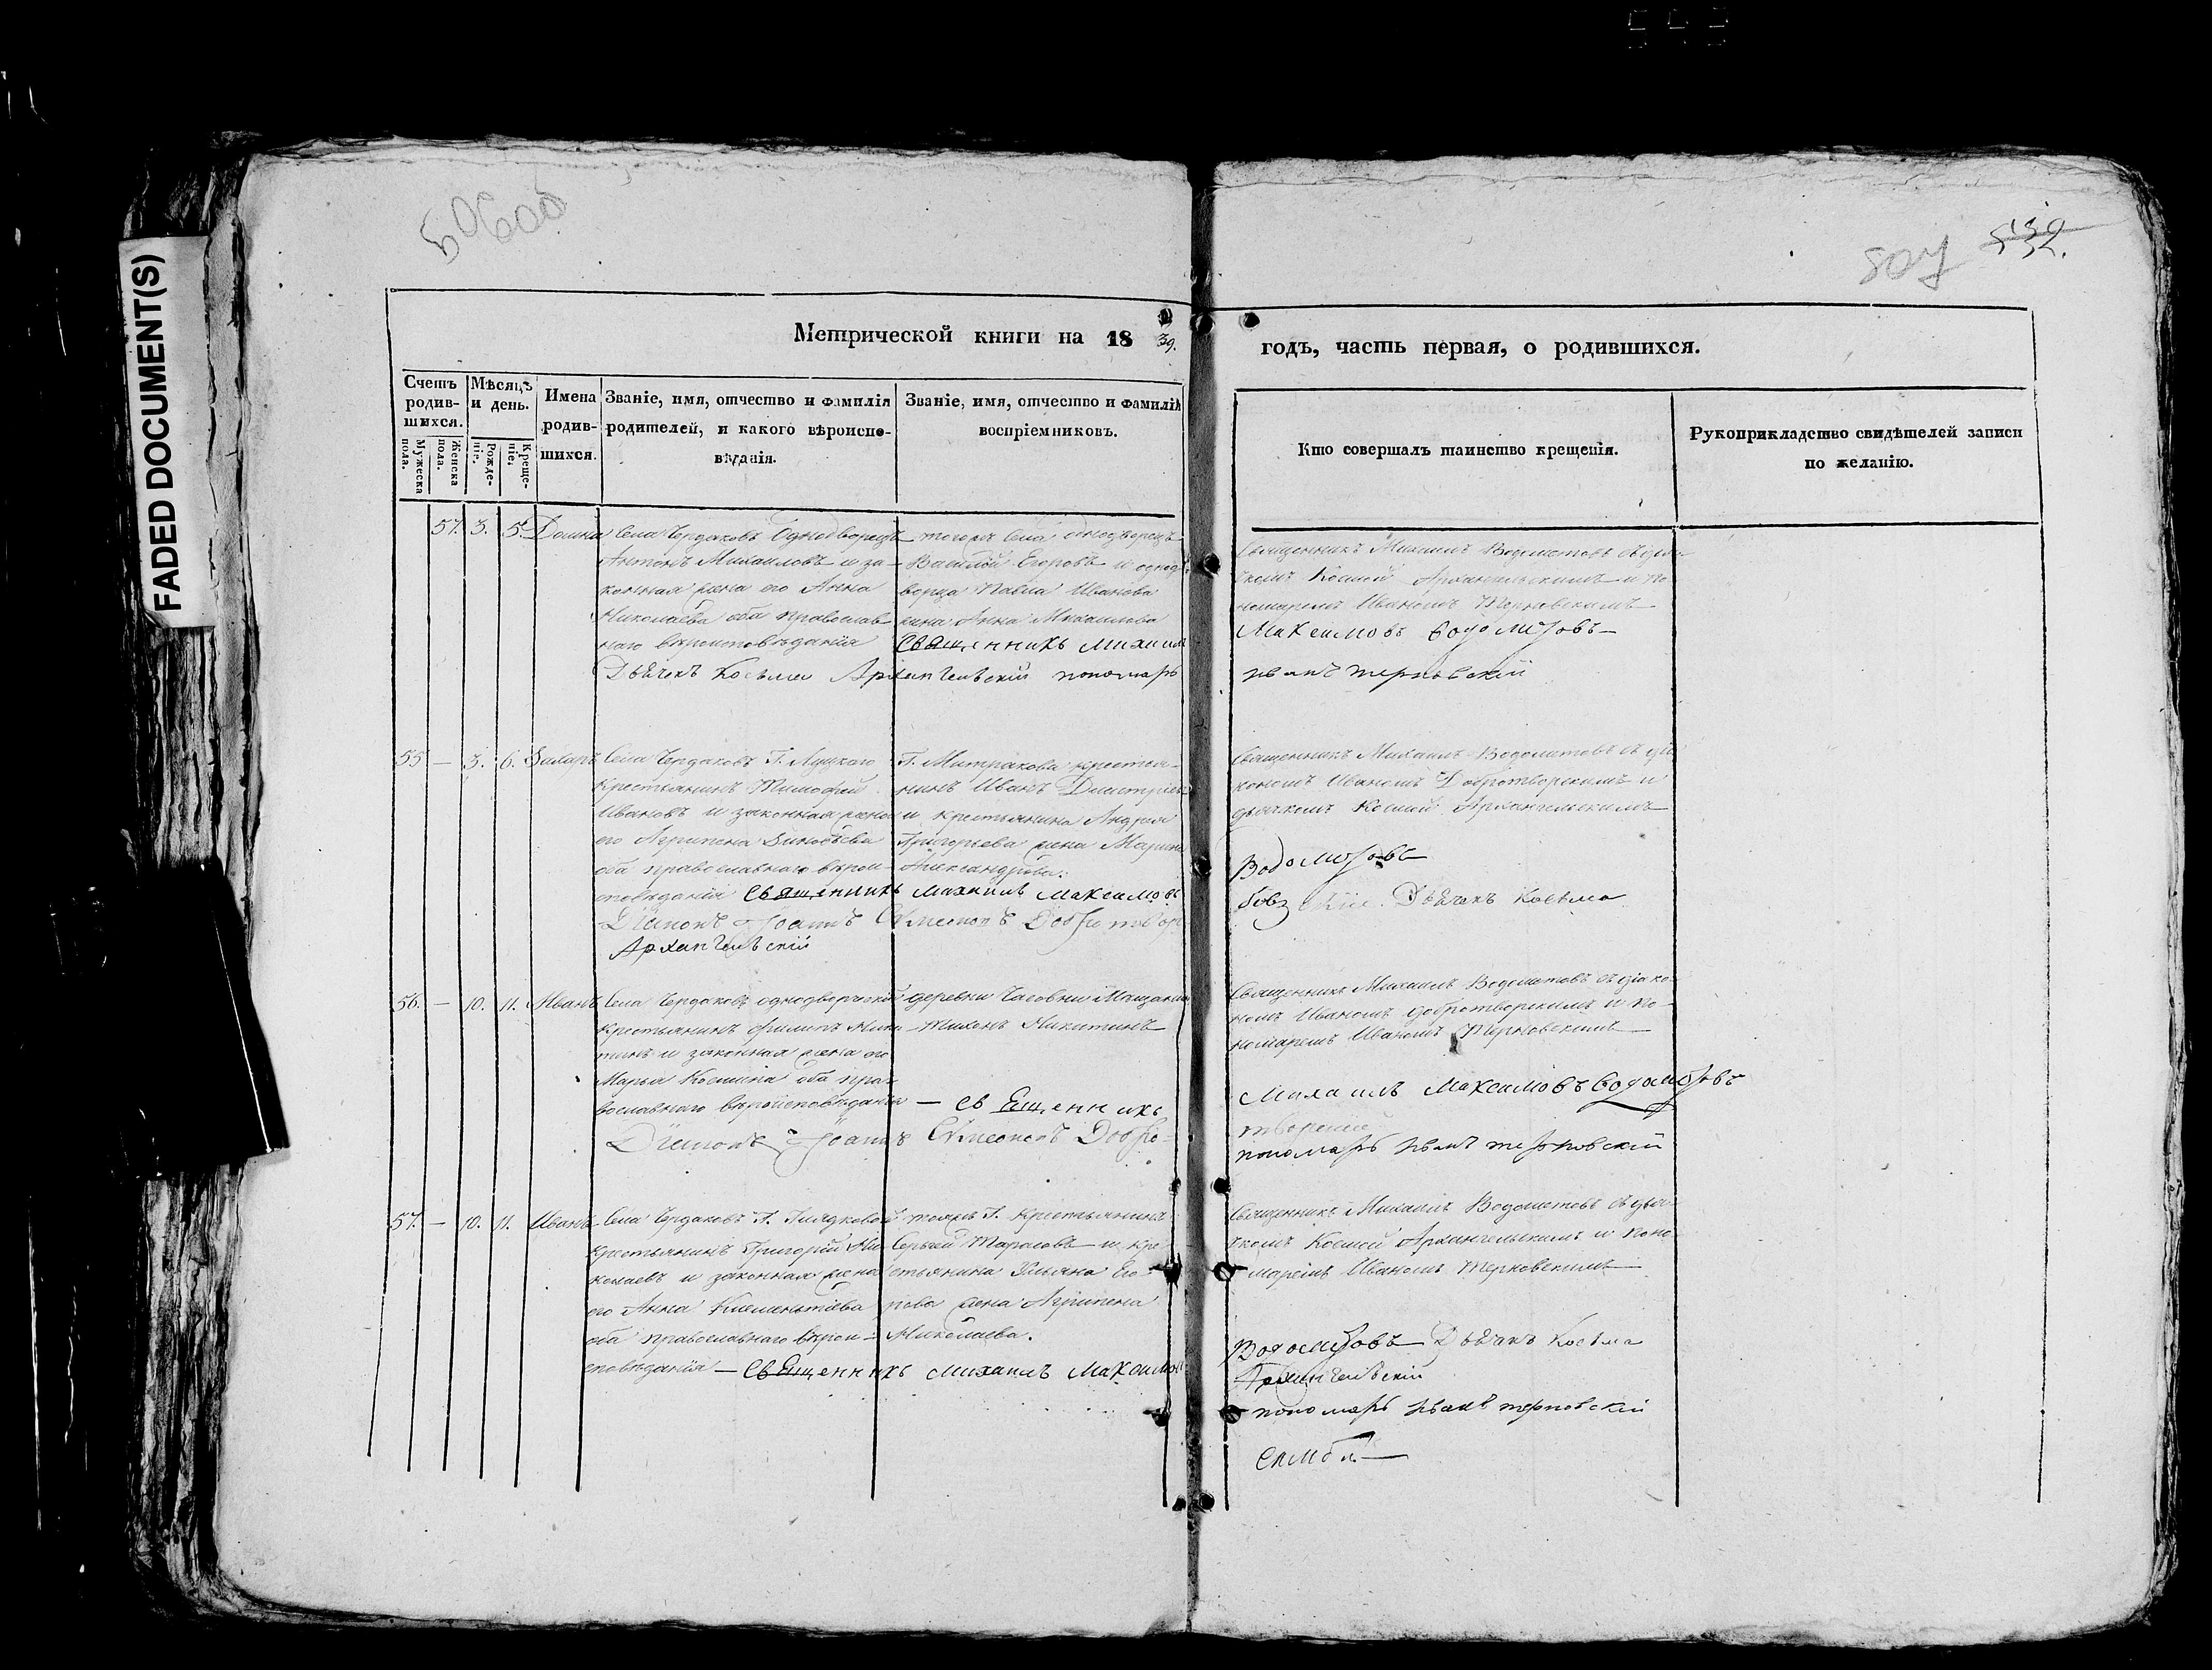 FADED DOCUMENT(S)
507
Метрической книги на 1839.
годъ, часть первая, о родившихся.
Счетъ родившихся.
Мужеска пола.
Женска пола.
Мѣсяцъ и день.
Рожденіе.
Крещеніе.
Имена родившихся.
Званіе, имя, отчество и фамилія родителей, и какого вѣроисповѣданія.
Званіе, имя, отчество и фамилія воспріемниковъ.
Кто совершалъ таинство крещенія.
Рукоприкладство свидѣтелей записи по желанію.
57. 3. 5.
Села Чердаковъ Однодворецъ
Антонъ Михаиловъ и за-
конная жена его Анна
Николаева оба православ
наго вѣроисповѣданія
тогожъ села однодворецъ
Василій Егоровъ и однод
ворца Павла Иванова
жена Анна Михаилова
Священникъ Михаилъ
Дьячекъ Косьма Архангельскій пономарь
Священникъ Михаилъ Водомотовъ съ дья-
чкомъ Космой Архангельскимъ и по-
номаремъ Иваномъ Терновскимъ
Максимовъ
Иванъ Терновскій
55 — 3. 6. Захаръ
Села Чердаковъ Г. Луцкого
крестьянинъ Тимофей
Ивановъ и законная жена
его Агрипена Зиновьева
оба православнаго вѣрои-
сповѣданія Священникъ Михаилъ Максимовъ
Г. Митракова крестья-
нинъ Иванъ Дмитріевъ
и крестьянина Андрея
Григорьева жена Марина
Александрова.
Діаконъ Іоаннъ Симеоновъ Добротвор
Архангельскій
Священникъ Михаилъ Водомотовъ съ діа
кономъ Иваномъ Добротворскимъ и
дьячкомъ Космой Архангельскимъ
Дьячекъ Косьма
56. — 10. 11. Иванъ
Села Чердаковъ однодворческій
крестьянинъ Филипъ Ники
тинъ и законная жена его
Марья Космина оба пра-
вославнаго вѣроисповѣданія — Священникъ
деревни Часовни Мещанинъ
Тихонъ Никитинъ
Діаконъ Іоаннъ Симеоновъ Добро-
Священникъ Михаилъ Водомотовъ съ діако-
номъ Иваномъ Добротворскимъ и по-
номаремъ Иваномъ Терновскимъ
Михаилъ Максимовъ
творскій
пономарь Иванъ Терновскій
57. — 10. 11. Иванъ
Села Чердаковъ Г.
крестьянинъ Григорій Ни
колаевъ и законная жена
его Анна Клементіева
оба православнаго вѣрои-
сповѣданія — Священникъ Михаилъ Максимов
тогожъ Г. крестьянинъ
Сергей Тарасовъ и кре
стьянина Ульяна Его
рова жена Агрипена
Николаева.
Священникъ Михаилъ Водомотовъ съ дья-
чкомъ Космой Архангельскимъ и поно-
маремъ Иваномъ Терновскимъ
Дьячекъ Косьма
Архангельскій
пономарь Иванъ Терновскій